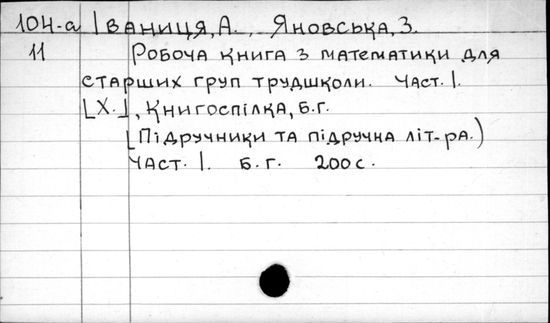 104-а Іваниця, А., Яновська, З.
11 Робоча книга з математики для
старших груп трудшколи. Част. 1.
[Х.], Книгоспілка, б.г.
[Підручники та підручна літ-ра.)
Част. 1. б.г. 200 с.